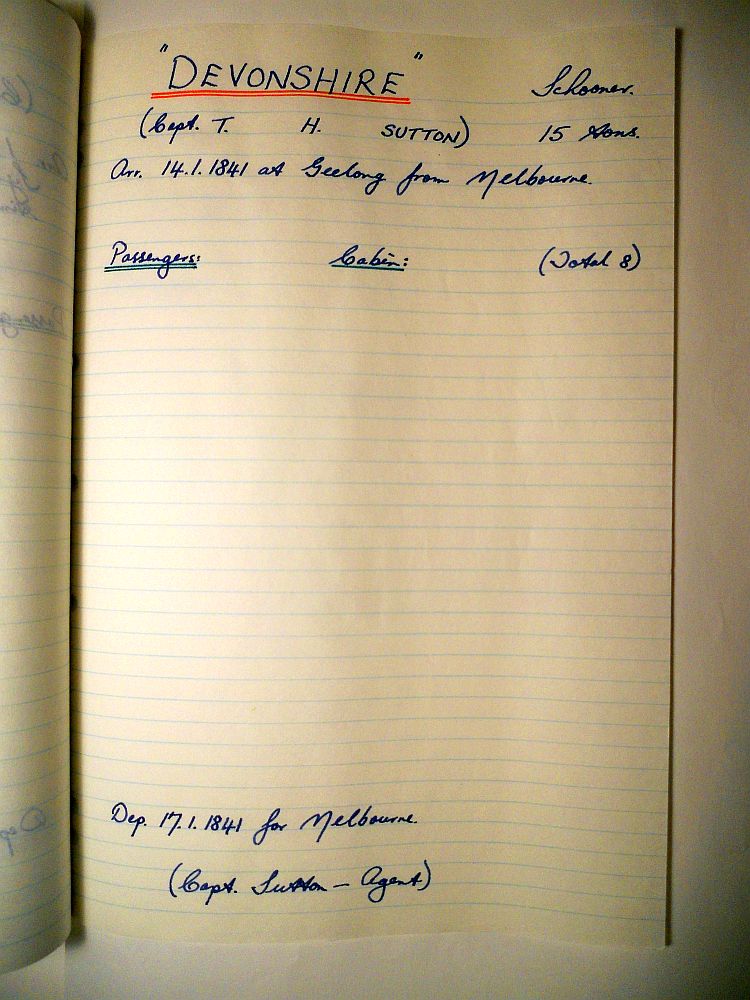 "DEVONSHIRE" Schooner.
(Capt. T. H. SUTTON) 15 tons.
Arr. 14.1.1841 at Geelong from Melbourne.
Passengers: Cabin: (Total 8)
Dep. 17.1.1841 for Melbourne.
(Capt. Sutton – Agent)